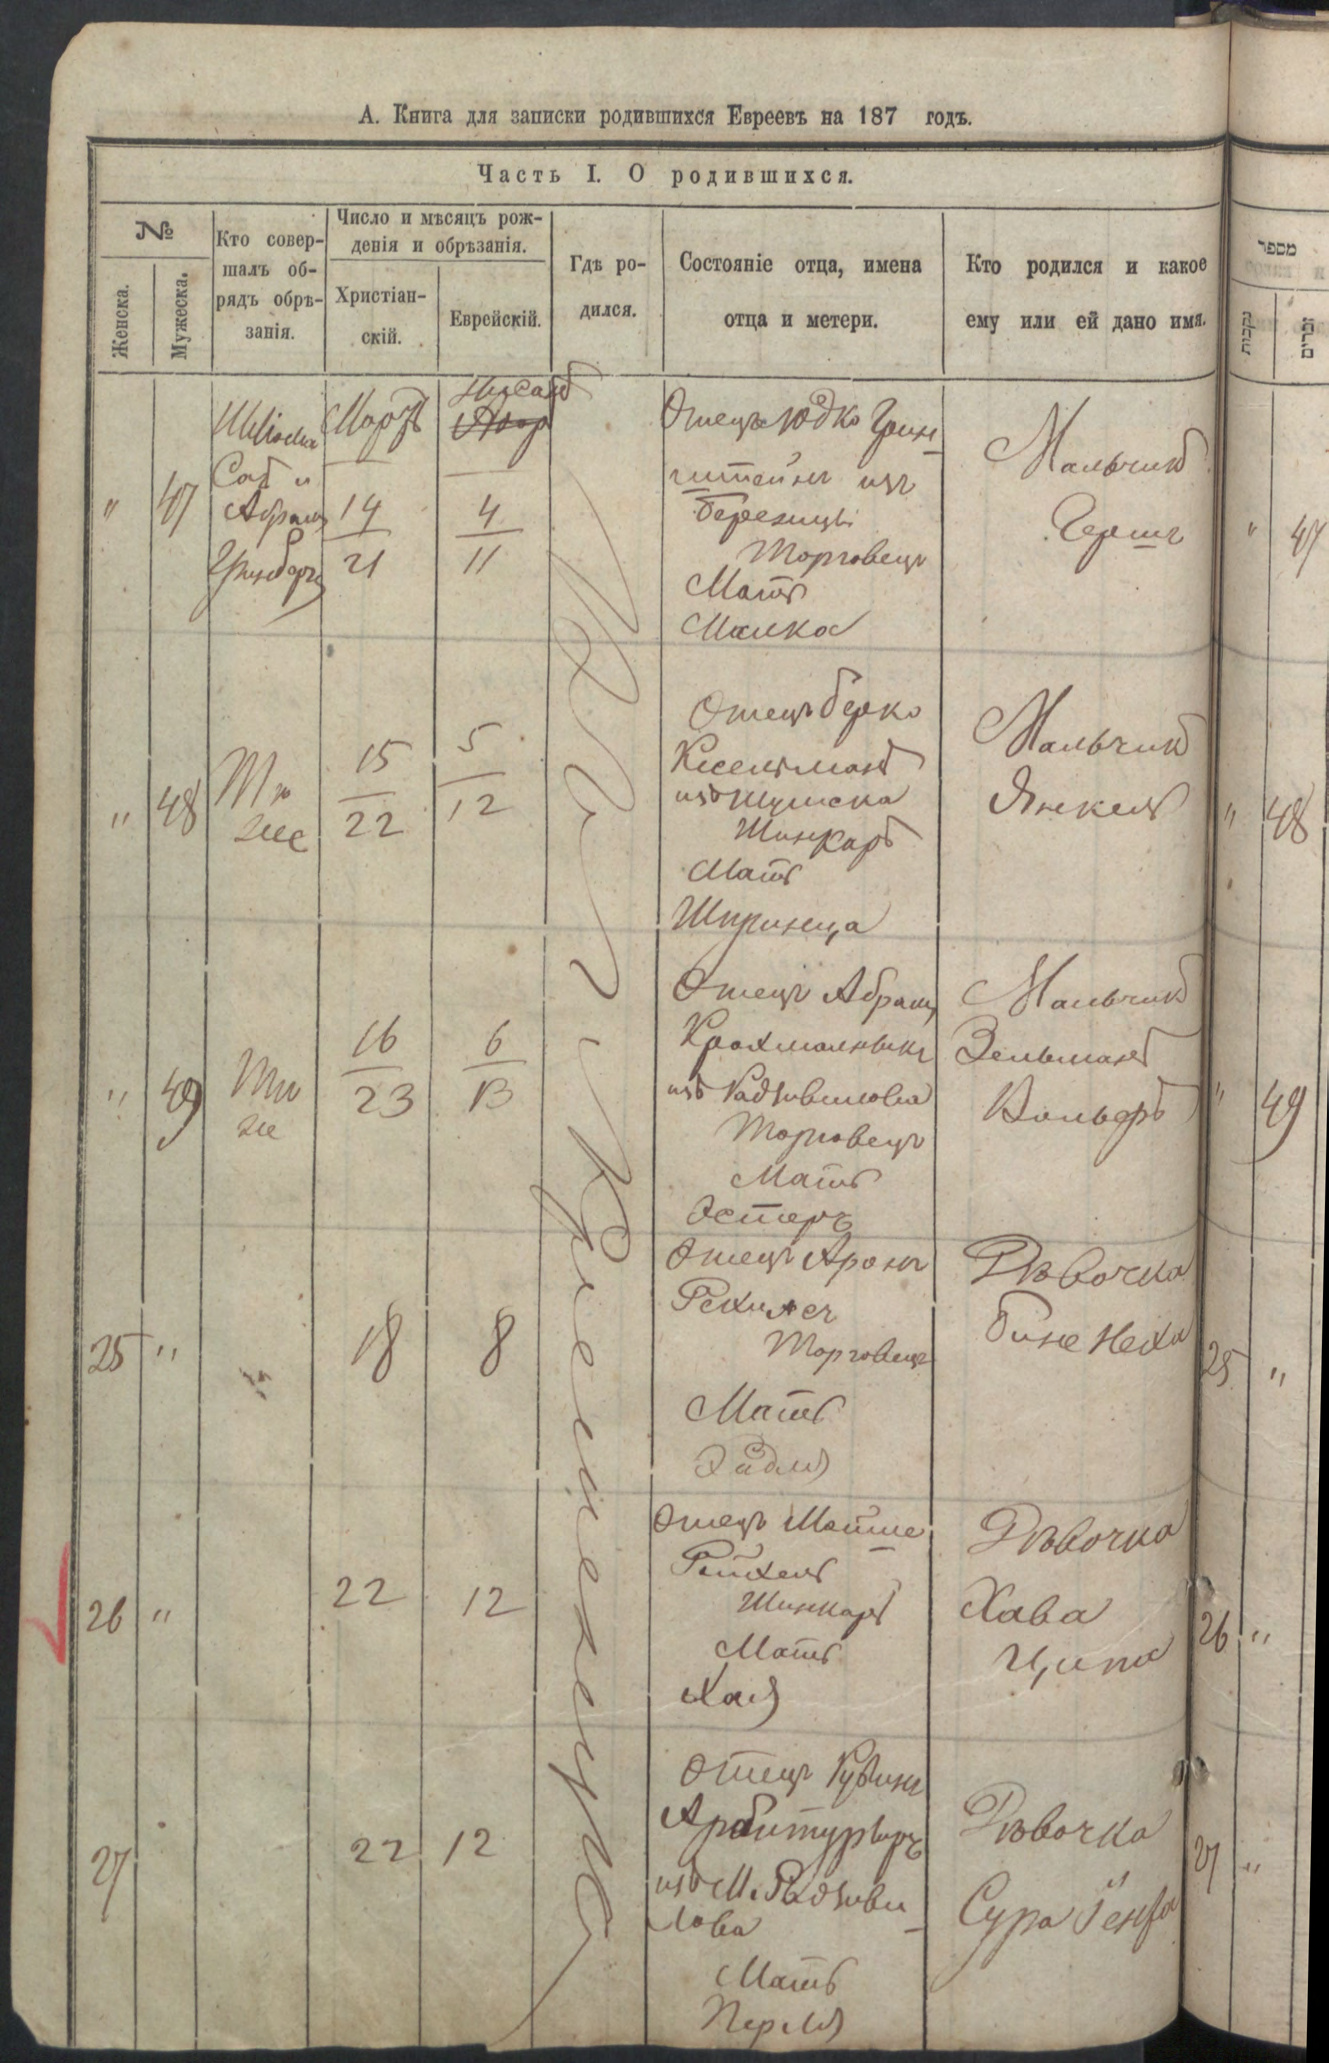 А. Книга для записки родившихся Евреевъ на 187 годъ.
Часть I. О родившихся.
№
Женска.
Мужеска.
Кто совер-
шалъ об-
рядъ обрѣ-
занія.
Число и мѣсяцъ рож-
денія и обрѣзанія.
Христіан-
скій.
Еврейскій.
Гдѣ ро-
дился.
Состояніе отца, имена
отца и метери.
Кто родился и какое
ему или ей дано имя.
מספר
נקבות
זכרים
" 47
Абрамъ
Гринбергъ
Мартъ
14
21
Нисанъ
4
11
Отецъ Юдко Грин-
штейнъ изъ
Березицы
Торговецъ
Мать
Малка
Мальчикъ
Гершъ
" 47
" 48
То
же
15
22
5
12
Отецъ Берко
Кесельманъ
изъ Шумска
Шинкаръ
Мать
Шпринца
Мальчикъ
Янкель
" 48
" 49
То
же
16
23
6
13
Отецъ Абрамъ
Крохмальникъ
изъ Радзивилова
Торговецъ
Мать
Эстеръ
Мальчикъ
Зельманъ
Вольфъ
" 49
25 "
18
8
Отецъ Аронъ
Торговецъ
Мать
Эйдля
Дѣвочка
Бине Неха
25 "
26 "
22
12
Отецъ Мойше
Рейхель
Шинкаръ
Мать
Хая
Дѣвочка
Хава
Ципа
26 "
27
22
12
Отецъ Рувинъ
изъ М. Радзиви-
лова
Мать
Перля
Дѣвочка
Сура Генфа
27 "
Кременецъ